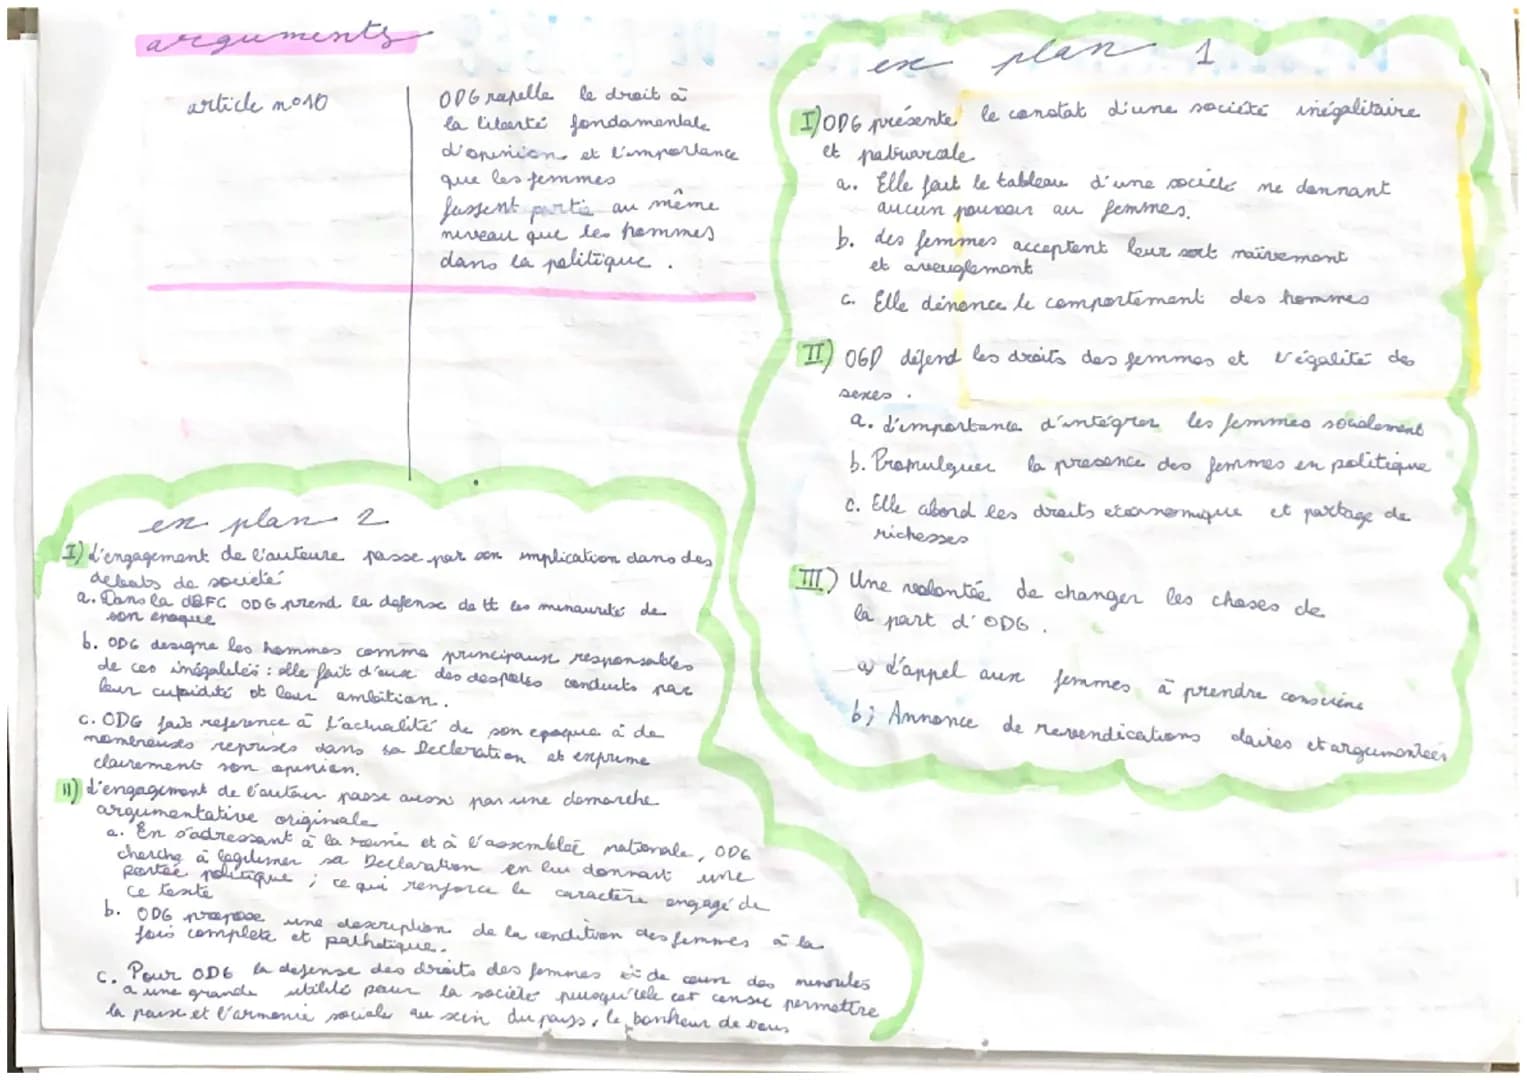 arguments
article n°10
ODG rapelle le droit à
la liberté fondamentale
d'opinion et l'importance
que les femmes
fassent partie au même
niveau que les hommes
dans la politique.
ex plan 1
I) ODG présente le constat d'une société inégalitaire
et patriarcale
a. Elle fait le tableau d'une société ne donnant
aucun pouvoir au femmes.
b. des femmes acceptent leur sort naïvement
et aveuglement
c. Elle dénonce le comportement des hommes
II) OGD défend les droits des femmes et l'égalité des
sexes.
a. L'importance d'intégrer les femmes socialement
b. Promulguer la presence des femmes en politique
c. Elle abord les droits économique et partage de
richesses
III) Une volontée de changer les choses de
la part d'ODG.
a) L'appel aux femmes à prendre conscience
b) Annonce de revendications claires et argumentées
ex plan 2
I) L'engagement de l'auteure passe par son implication dans des
débats de société
a. Dans la DDFC ODG prend la defense de tt les minaurité de
son époque
b. ODG designe les hommes comme principaux responsables
de ces inégalités : elle fait d'eux des despotes conduits par
leur cupidité et leur ambition.
c. ODG fait reference à l'actualité de son epoque à de
nombreuses reprises dans sa Declaration et exprime
clairement son opinion.
II) L'engagement de l'auteur passe aussi par une demarche
argumentative originale
a. En s'adressant à la reine et à l'assemblée nationale, ODG
cherche à legitimer sa Declaration en lui donnant une
portée politique ; ce qui renforce le caractère engagé de
ce texte
b. ODG propose une description de la condition des femmes à la
fois complete et pathetique.
c. Pour ODG la defense des droits des femmes et de ceux des minorités
a une grande utilité pour la société puisqu'elle est censé permettre
la paix et l'armonie sociale au sein du pays, le bonheur de tous